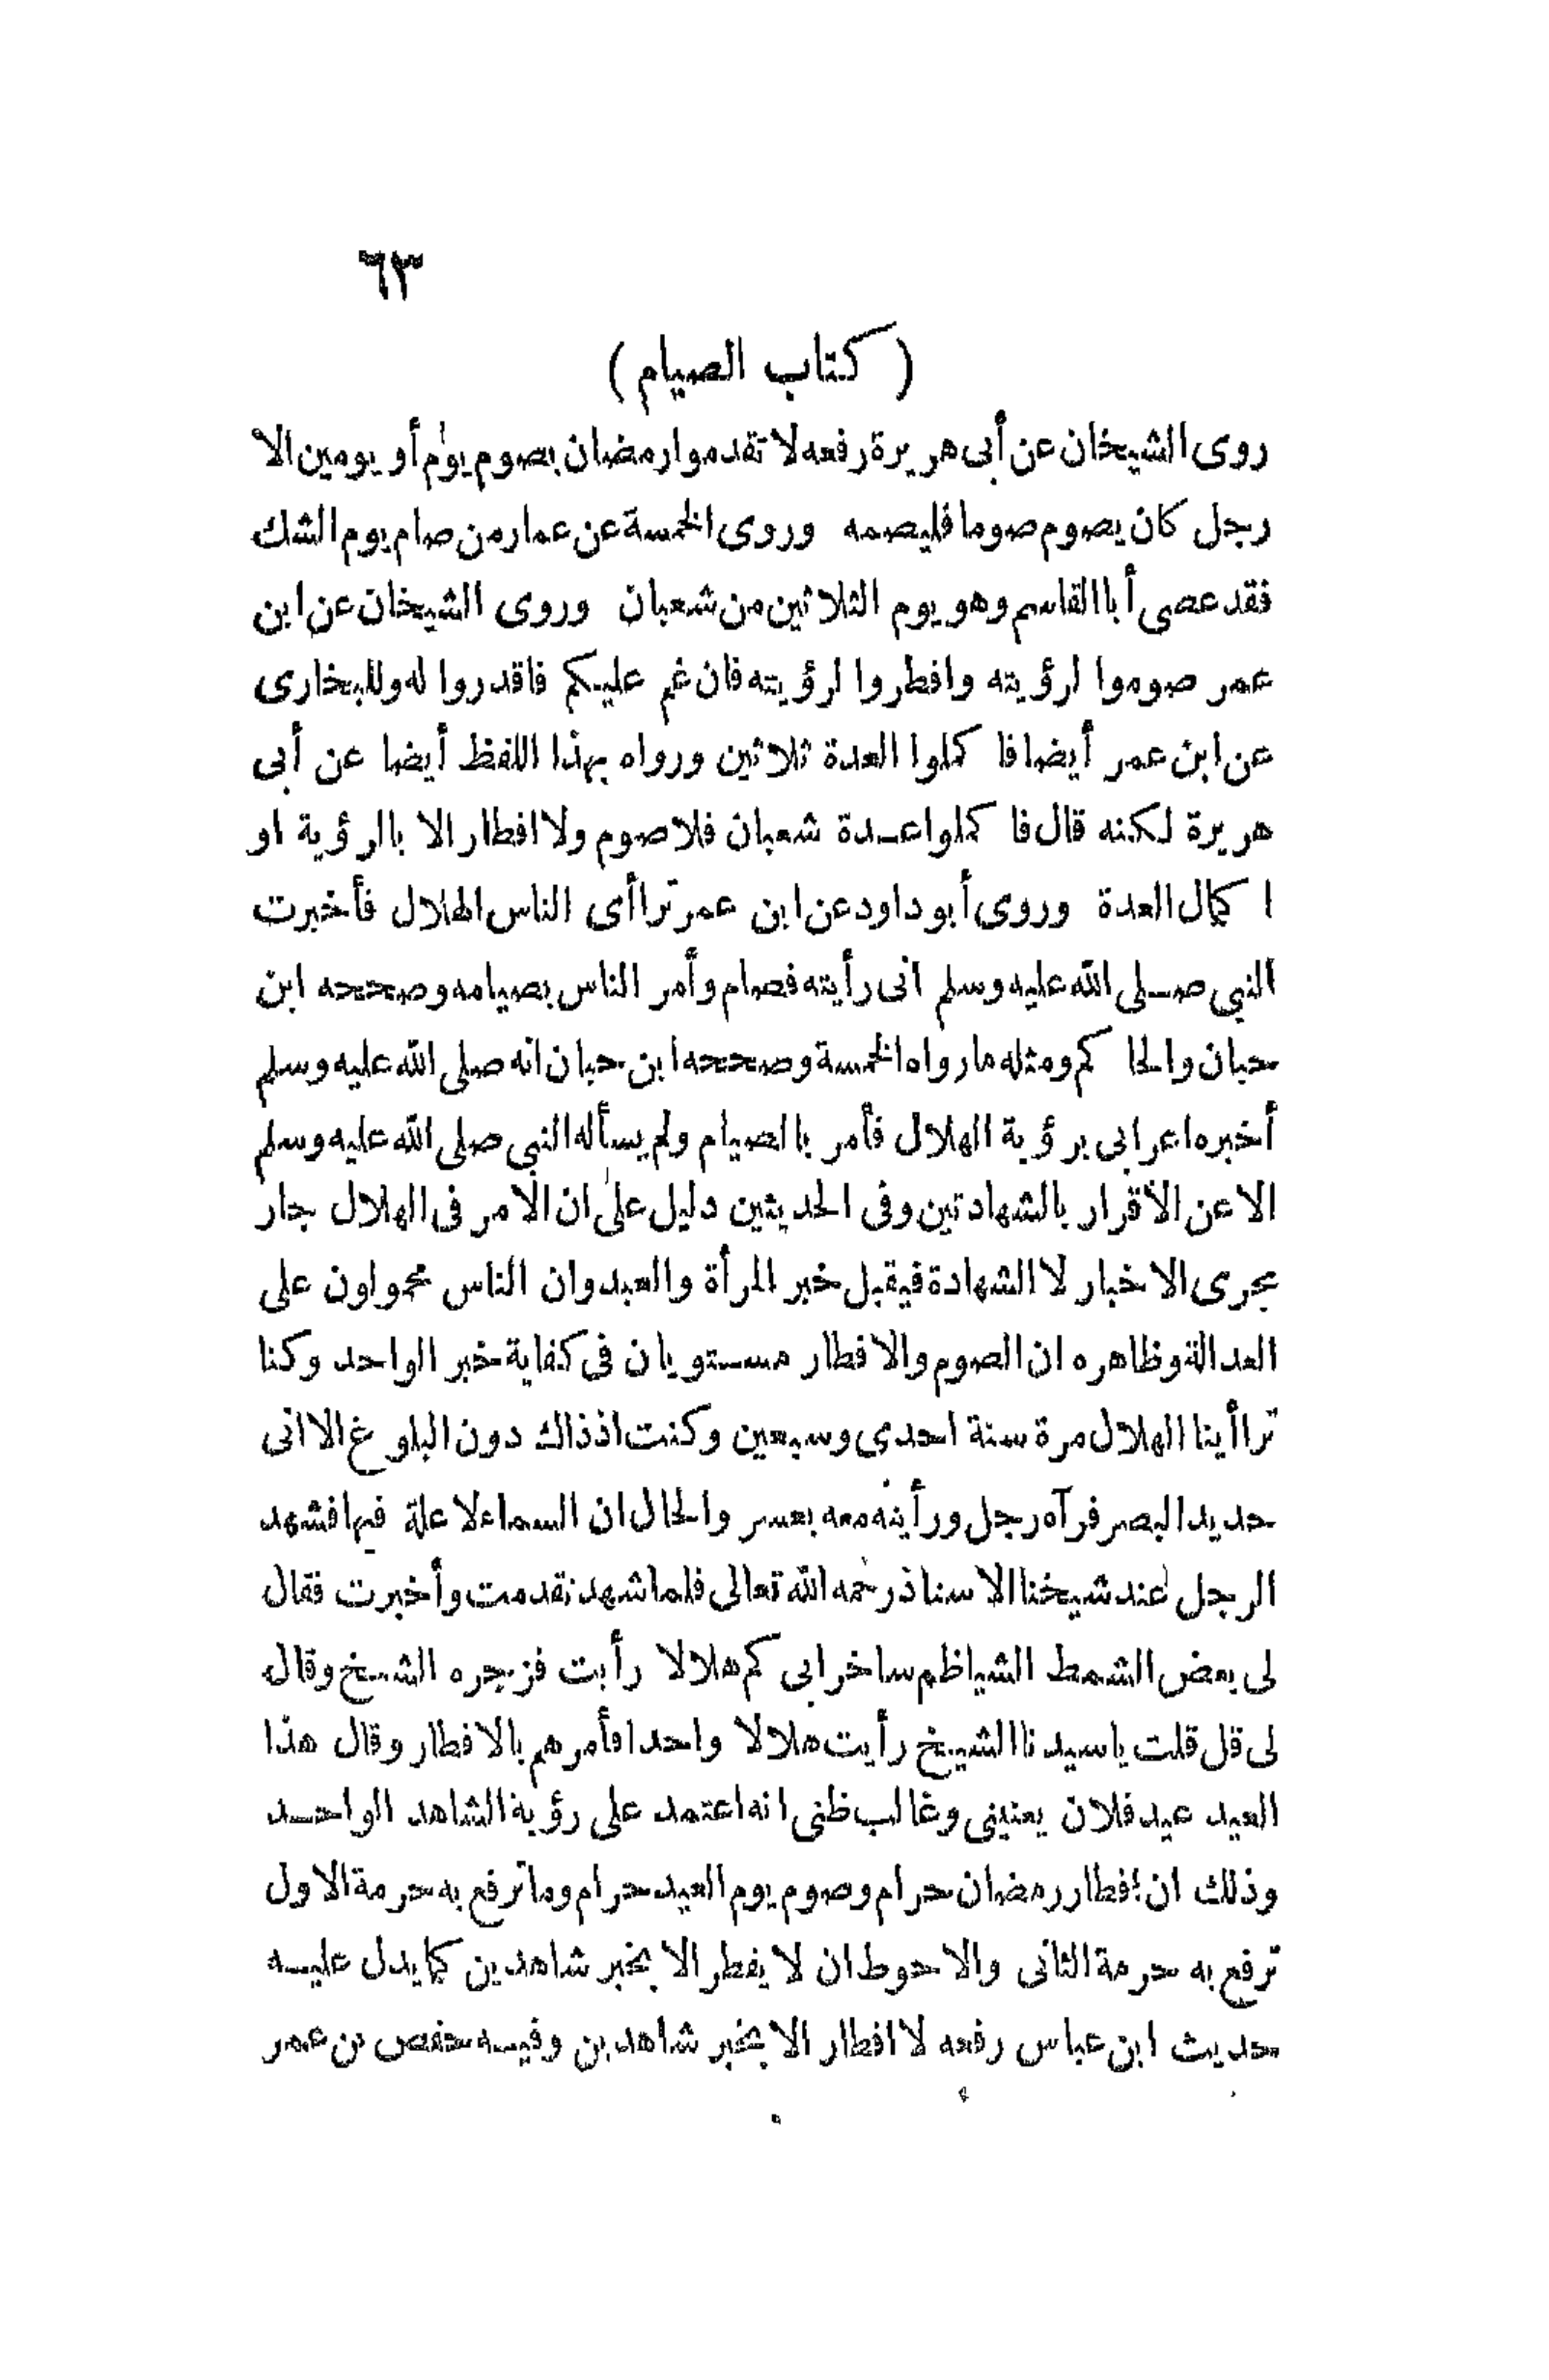 ٦٣
( كتاب الصيام )
روى الشيخان عن أبى هريرة رفعه لا تقدموا رمضان بصوم يوم أو يومين الا
رجل كان يصوم صوما فليصمه وروى الخمسة عن عمار من صام يوم الشك
فقد عصى أبا القاسم وهو يوم الثلاثين من شعبان وروى الشيخان عن ابن
عمر صوموا لرؤيته وافطروا لرؤيته فان غم عليكم فاقدروا له وللبخارى
عن ابن عمر أيضا فاكملوا العدة ثلاثين ورواه بهذا اللفظ أيضا عن أبى
هريرة لكنه قال فاكملوا عدة شعبان فلا صوم ولا افطار الا بالرؤية او
اكمال العدة وروى أبو داود عن ابن عمر تراأى الناس الهلال فأخبرت
النبي صلى الله عليه وسلم انى رأيته فصام وأمر الناس بصيامه وصححه ابن
حبان والحاكم ومثله مارواه الخمسة وصححه ابن حبان انه صلى الله عليه وسلم
أخبره اعرابى برؤية الهلال فأمر بالصيام ولم يسأله النبي صلى الله عليه وسلم
الا عن الاقرار بالشهادتين وفى الحديثين دليل على ان الامر فى الهلال جار
مجرى الاخبار لا الشهادة فيقبل خبر المرأة والعبد وان الناس محمولون على
العدالة وظاهره ان الصوم والافطار مستويان فى كفاية خبر الواحد وكنا
تراأينا الهلال مرة سنة احدى وسبعين وكنت اذذاك دون البلوغ الا انى
حديد البصر فرآه رجل ورأيته معه بعسر والحال ان السماء لا علة فيها فشهد
الرجل عند شيخنا الاستاذ رحمه الله تعالى فلما شهد تقدمت وأخبرت فقال
لى بعض الشمط الشياظم ساخرا بى كم هلالا رأيت فزجره الشيخ وقال
لى قل قلت ياسيدنا الشيخ رأيت هلالا واحدا فأمرهم بالافطار وقال هذا
العيد عيد فلان يعنينى وغالب ظنى انه اعتمد على رؤية الشاهد الواحد
وذلك ان إفطار رمضان حرام وصوم يوم العيد حرام وما ترفع به حرمة الاول
ترفع به حرمة الثانى والاحوط ان لا يفطر الا بخبر شاهدين كما يدل عليه
حديث ابن عباس رفعه لا افطار الا بخبر شاهدين وفيه حفص بن عمر